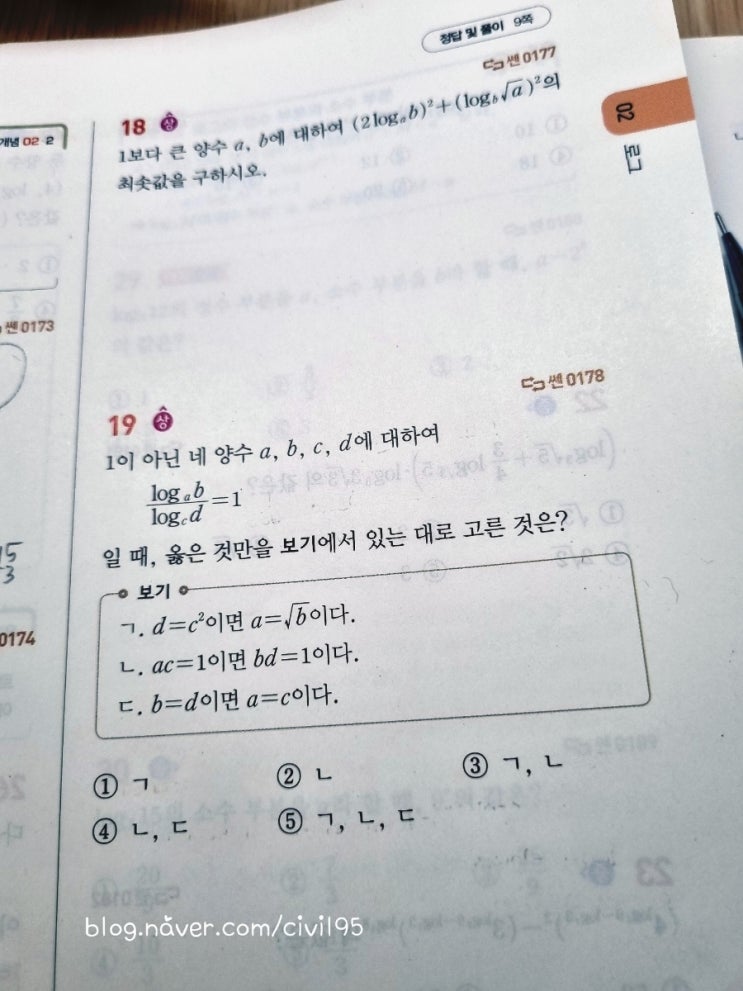 정답 및 풀이 9쪽
쎈 0177
02
로그
개념 02-2
18 상
1보다 큰 양수 a, b에 대하여 (2logₐb)²+(log_b√a)²의
최솟값을 구하시오.
쎈 0173
쎈 0178
19 상
1이 아닌 네 양수 a, b, c, d에 대하여
logₐb/log_c d=1
일 때, 옳은 것만을 보기에서 있는 대로 고른 것은?
보기
ㄱ. d=c²이면 a=√b이다.
ㄴ. ac=1이면 bd=1이다.
ㄷ. b=d이면 a=c이다.
0174
① ㄱ ② ㄴ ③ ㄱ, ㄴ
④ ㄴ, ㄷ ⑤ ㄱ, ㄴ, ㄷ
blog.naver.com/civil95